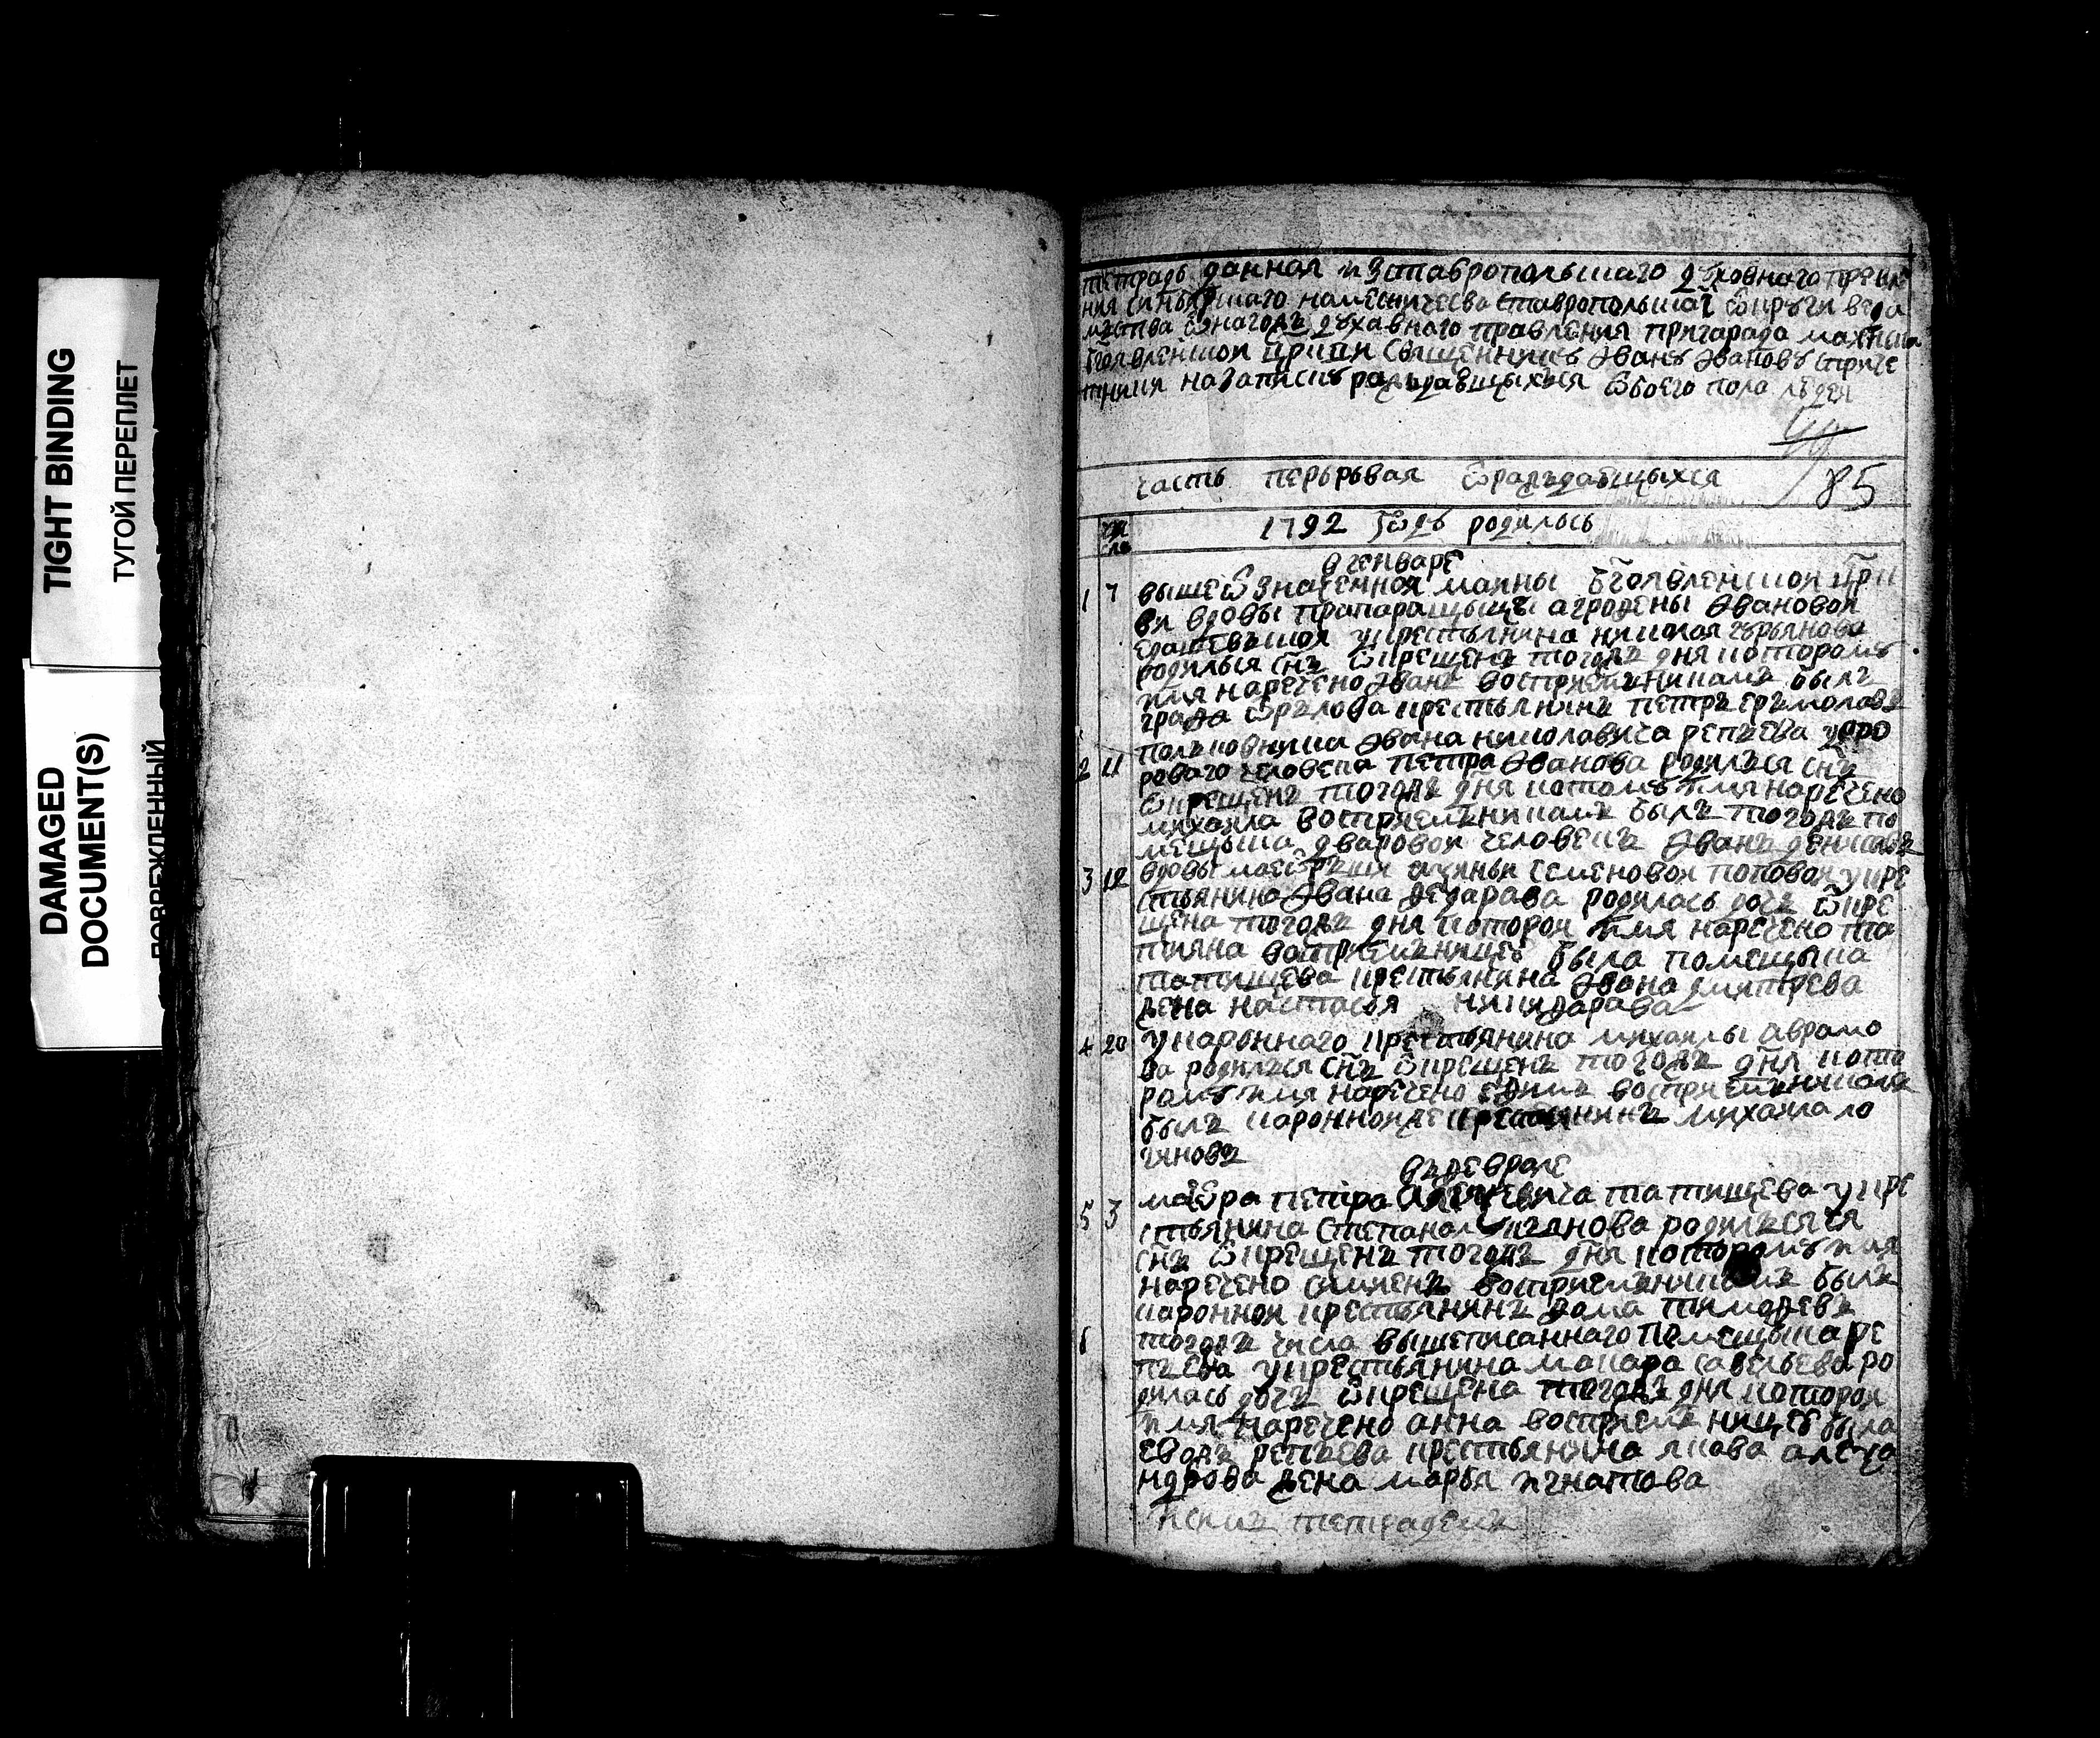 TIGHT BINDING
ТУГОЙ ПЕРЕПЛЕТ
DAMAGED
DOCUMENT(S)
ПОВРЕЖДЕННЫЙ
тетрадь данная изставропольшаго дховнаго правле
ния синбиршаго намесничесва ставропольшои ѡкрꙋги веда
мства ѡнагожъ дꙋхавнаго правления пригарада
бг҃оявленшои цркви священникꙋ иванꙋ ивановꙋ спричe
тники назапискꙋ раждавщыхъся ѡбоего пола людеи
85
часть перьрвая ѡраждавщыхся
1792 годъ родилось
чи
сла
вгенваре
1 7 вышеѡзначенной маины бг҃оявленшои цр҃к
ви вдовы прапарщыцы агрофены ивановои
укрестьянина николая гурьянова
родилься сн҃ъ ѡкрещенъ тогожъ дня котораму
имя наречено иванъ восприемъникамъ былъ
крестьянинъ петръ ермолавъ
2 11 польковника ивана николавича репьева удво
роваго человека петра иванова родилъся сн҃ъ
ѡкрещенъ тогожъ дня котому имя наречено
михаила восприемъникамъ былъ тогожъ по
мещыка дваровои человекъ иванъ
3 12 вдовы семеновои поповои укре
стьянина ивана федарава родилась дочь ѡкре
щена тогожъ дня которои имя наречено та
тияна восприемъницею была помещыка
татищева крестьянина ивана дмитрева
жена настасья никифарава
4 20 укаронного крестьянина михаилы аврамо
ва родилъся сн҃ъ ѡкрещенъ тогожъ дня кото
раму имя наречено ефимъ восприемъникамъ
былъ каронноиже крестьянинъ михаила ло
гиновъ
въфеврале
5 3 маеѡра петра алексеевича татищева укре
стьянина степана родилъся
сн҃ъ ѡкрещенъ тогожъ дня котораму имя
наречено симиенъ восприемъникамъ былъ
каронной крестьянинъ фама тимофевъ
6 тогожъ числа вышеписаннаго помещыка ре
пьева укрестьянина макара савельева ро
дилась дочь ѡкрещена тогожъ дня которои
имя наречено анна восприемъницею была
евожъ репьева крестьянина
ндрова жена марья игнатова